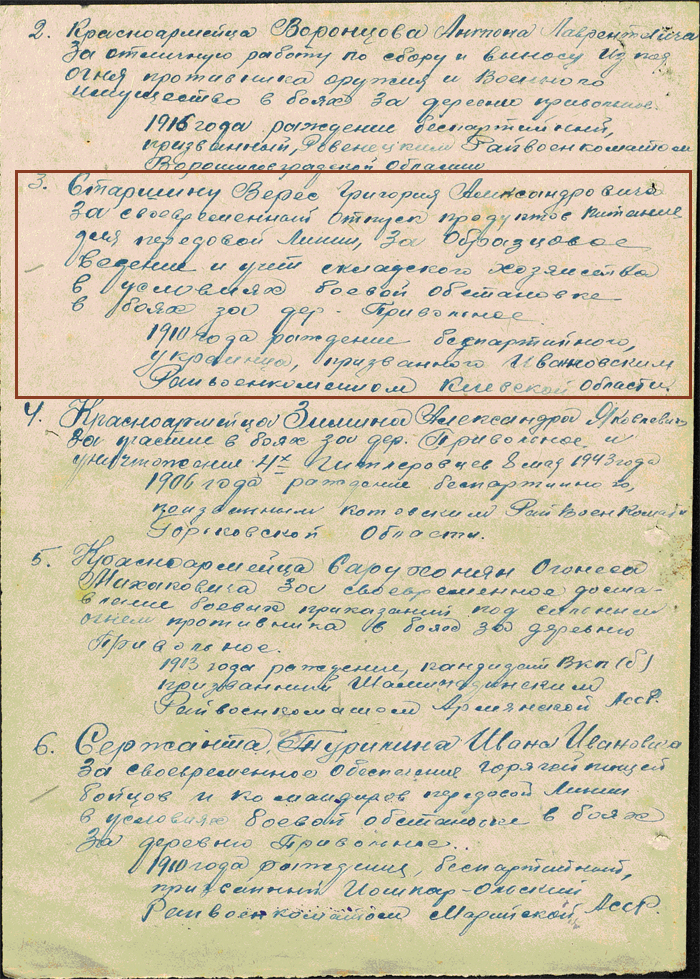 2. Красноармейца Воронцова Антона Лаврентьевича
За отличную работу по сбору и выносу из под
огня противника оружия и военного
имущество в боях за деревню привольное.
1916 года рождение беспартийный,
призванный, Ровенецким Райвоенкоматом
Ворошиловградской области
3. Старшину Верес Григория Александровича
За своевременный отпуск продуктов питание
для передовой линии, за образцовое
ведение и учет складского хозяйства
в условиях боевой обстановке
в боях за дер. Привольное.
1910 года рождение беспартийного,
украинца, призванного Ивановским
Райвоенкоматом Киевской области.
4. Красноармейца Зимина Александра Яковлевич
За участие в боях за дер. Привольное и
уничтожение 4х гитлеровцев 8 мая 1943 года
1906 года рождение беспартийного,
призванным котовским Райвоенкомат
Горьковской области.
5. Красноармейца Саруханян Оганеса
За своевременное доста-
вление боевых приказаний под сильным
огнем противника в боях за деревню
Привольное.
1913 года рождение, кандидат ВКП(б)
призванный
Райвоенкоматом Армянской АССР.
6. Сержанта Турилина Ивана Ивановича
За своевременное обеспечение горячей пищей
бойцов и командиров передовой линии
в условиях боевой обстановке в боях
за деревню Привольное.
1910 года рождение, беспартийный,
призванный Йошкар-Олинский
Райвоенкоматом Марийской АССР.